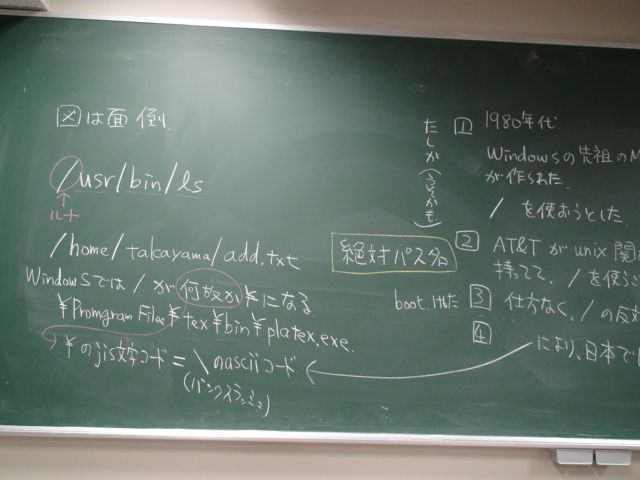 図は面倒.
/usr/bin/ls
↑
ルート
/home/takayama/add.txt
絶対パス名
Windowsでは / が 何故か ¥になる
¥Promgram Files¥tex¥bin¥platex.exe.
¥のjis文字コード = \のasciiコード
(バックスラッシュ)
たしか(うそかも)
1 1980年代
Windowsの先祖のM
が作られた.
/ を使おうとした.
2 AT&T が unix 関
持ってて、/ を使う
boot.
3 仕方なく、/ の反対
4
により、日本で